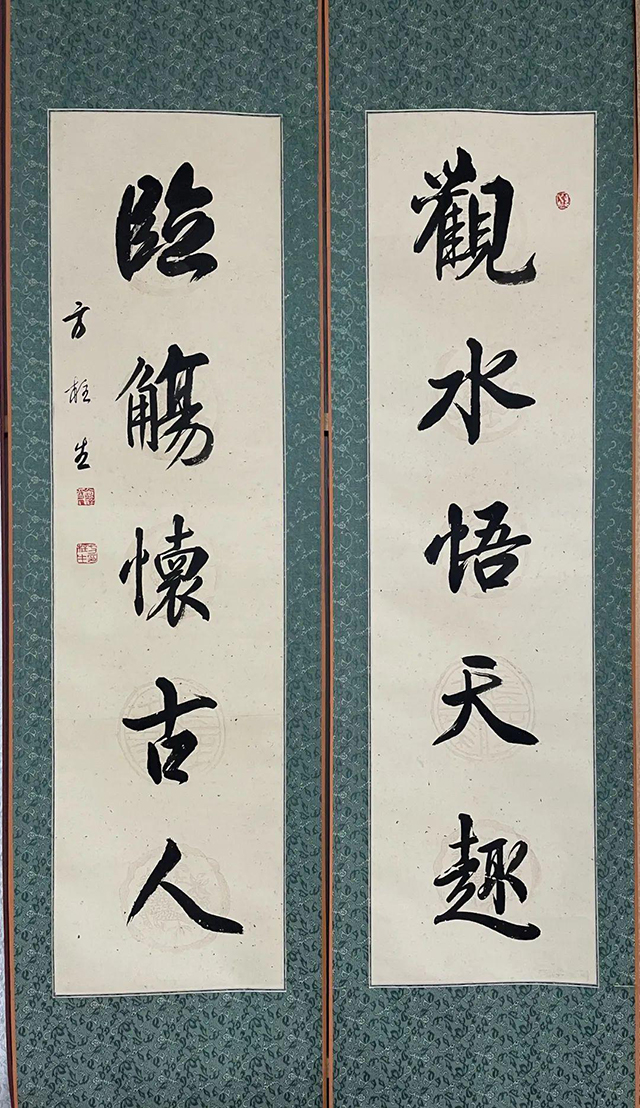 觀水悟天趣
臨觴懷古人
方桂生